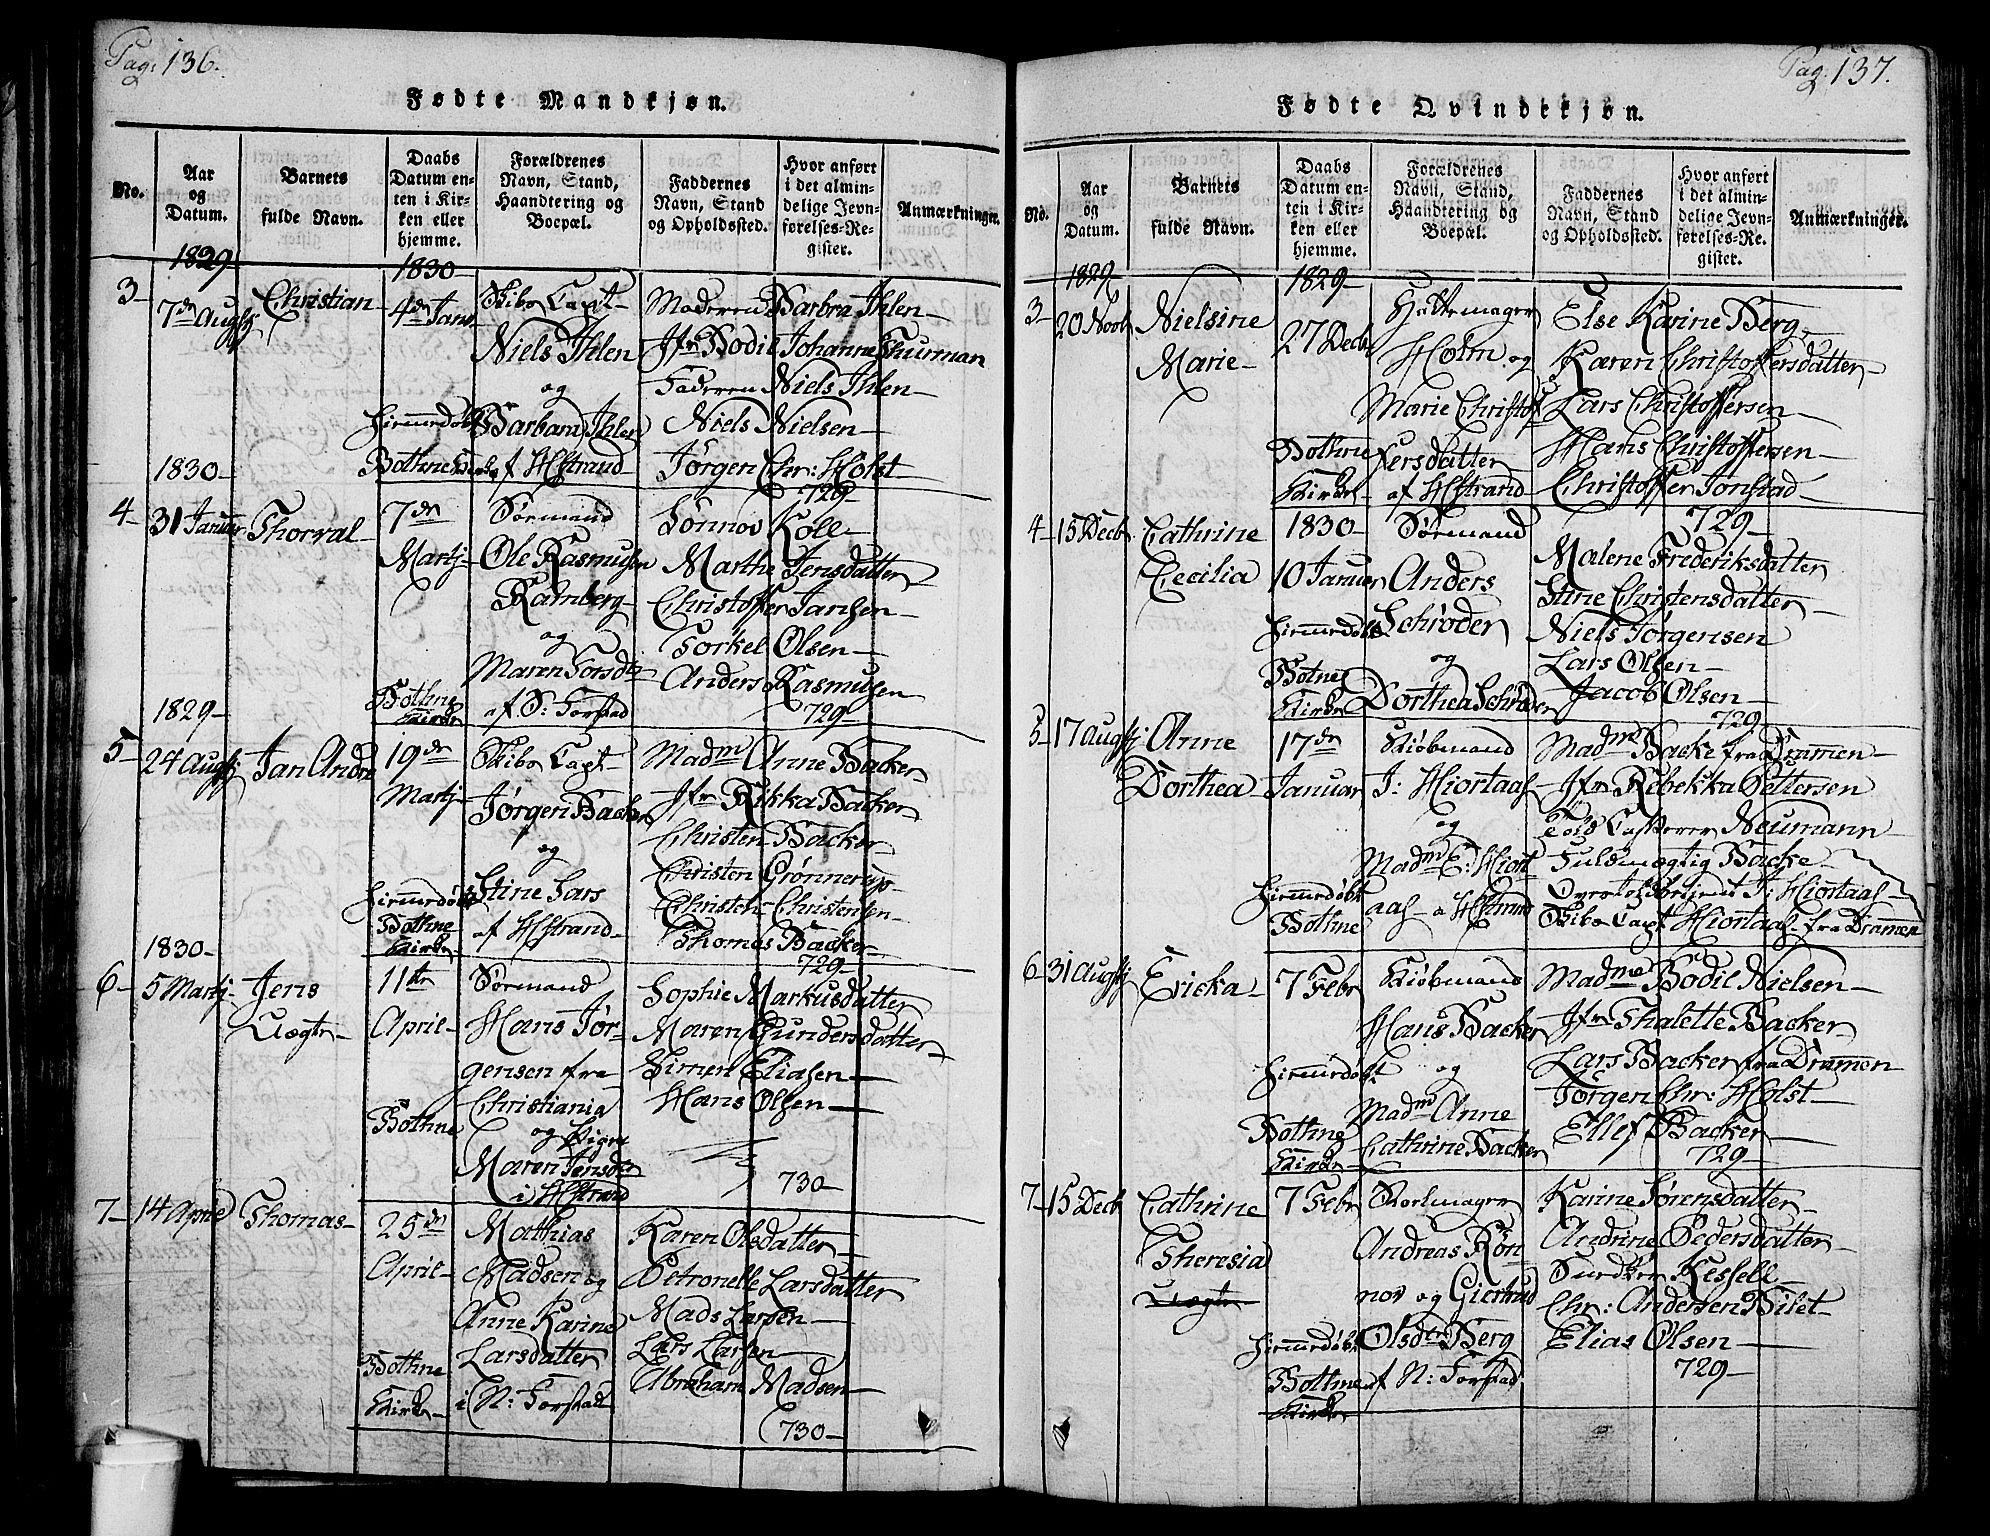 Pag: 136.
Fødte Mandkjøn.
No.
Aar
og
Datum.
Barnets
fulde Navn.
Daabs
Datum en-
ten i Kir-
ken eller
hjemme.
Forældrenes
Navn, Stand,
Haandtering og
Boepæl.
Faddernes
Navn, Stand
og Opholdssted.
Hvor anført
i det almin-
delige Jevn-
førelses-Re-
gister.
Anmærkninger.
1829-
1830-
3-
7de Augstj
Christian
4de Janr
Hiemdøbt
Bothne
Skibs Capt-
Niels Ihlen
og
Barbara Ihlen
af Hstrand
Moderen Barbra Ihlen-
Jfr Bodil Johanne Thurman
Faderen Niels Ihlen-
Niels Nielsen-
Jørgen Chr: Holst-
729-
1830-
4-
31 Januar
Thorval-
7de
Martj-
Bothne
Kirke
Sørmand
Ole Rasmusen
Ramberg-
og
Maren Torsdtr
af S: Forstad
Lønnov Köll-
Marthe Jensdatter-
Christoffer Jansen-
Torkel Olsen-
Anders Rasmusen
729-
1829-
5-
24 Augstj
Jan Andre
19de
Martj-
Hiemdøbt
Bothne
Kirke
Skibs Capt-
Jørgen Backer
og
Stine Lars
af Hstrand-
Madme Anne Backer
Jfr Rikka Backer-
Christen Backer-
Christen Grønnerup-
Christen Christensen-
Thomas Backer-
729-
1830-
6-
5 Martj-
Jens
Uægte-
11te
April-
Bothne
Sørmand
Hans Jør-
gensen fra
Christiania
og Pigen
Maren Jensdtr
i Hstrand
Sophie Markusdatter
Maren Gundersdatter-
Simen Eliasen-
Hans Olsen-
730-
7-
14 April
Thomas-
25de
April-
Bothne
Kirke-
Mathias
Madsen og
Anne Karine
Larsdatter
i N: Forstad
Karen Olsdatter-
Petronelle Larsdatter
Mads Larsen-
Lars Larsen-
Abraham Madsen-
730-
Pag: 137.
Fødte Qvindekjøn.
No.
Aar
og
Datum.
Barnets
fulde Navn.
Daabs
Datum en-
ten i Kir-
ken eller
hjemme.
Forældrenes
Navn, Stand,
Haandtering og
Boepæl.
Faddernes
Navn, Stand
og Opholdssted.
Hvor anført
i det almin-
delige Jevn-
førelses-Re-
gister.
Anmærkninger.
1829
1829-
3-
20 Novb
Nielsine
Marie-
27 Decb
Bothne
Kirke-
Hattemager
Holm og
Marie Christof-
fersdatter-
af Hstrand-
Else Karine Berg-
Karen Christoffersdatter-
Lars Christoffersen-
Hans Christoffersen-
Christoffer Jonstad-
729-
4-
15 Decb
Cathrine
Cecilia
1830-
10 Januar
Hiemdøbt
Botne
Kirke
Sørmand
Anders
Schrøder
og
Dorthea Schrøder
Malene Frederiksdatter
Stine Christensdatter-
Niels Jørgensen
Lars Olsen-
Jacob Olsen-
729-
5-
17 Augstj
Anne
Dorthea
17de
Januar
Hiemdøbt
Bothne
Kiøbmand
J: Hiortaas-
og
Madm E: Hiort
aas- a Hstrand
Madme Backe fra Dramen-
Jfr Rebekka Pettersen
Told Casserer Neumann
Fuldmægtig Backe-
J: Hiortaas-
Skibs Capt Hiortaas- fra Dramen
6-
31 Augstj
Ericka-
7 Febr
Hiemdøbt
Bothne
Kirke-
Kiøbmand
Hans Backer
og
Madm Anne
Cathrine Backer
Madme Bodil Nielsen-
Jfr Thalette Backer
Lars Backer fra Dramen
Jørgen Chr: Holst-
Ellef Backer-
729-
7-
15 Decb
Cathrine
Theresia
Uægte
7 Febr
Hiemdøbt
Bothne
Kirke
Andreas Røn
nov og Giertrud
Olsdtr Berg
af N: Forstad
Karine Sørensdatter-
Andrine Pedersdatter-
Kessell-
Chr: Andersen Bilet-
Elias Olsen-
729-